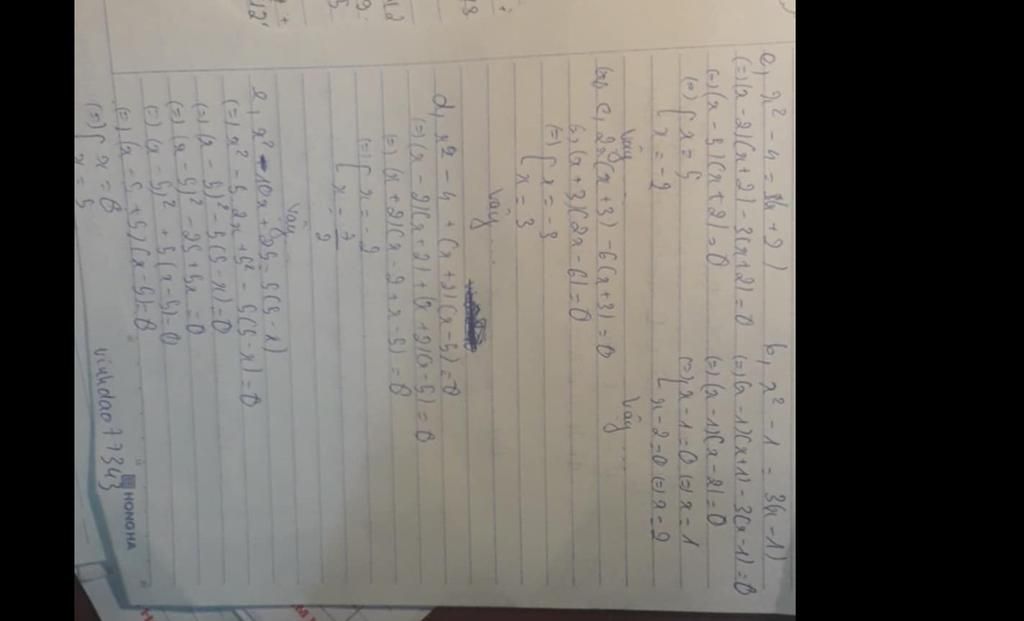 a, x² - 4 = 3(x + 2)
(=) (x - 2)(x + 2) - 3(x + 2) = 0
(=) (x - 5)(x + 2) = 0
(=) [ x = 5
[ x = -2
Vậy
b, x² - 1 = 3(x - 1)
(=) (x - 1)(x + 1) - 3(x - 1) = 0
(=) (x - 1)(x - 2) = 0
(=) [ x - 1 = 0 (=) x = 1
[ x - 2 = 0 (=) x = 2
Vậy ...
c, 2x(x + 3) - 6(x + 3) = 0
(=) (x + 3)(2x - 6) = 0
(=) [ x = -3
[ x = 3
Vậy ...
d, x² - 4 + (x + 2)(x - 5) = 0
(=) (x - 2)(x + 2) + (x + 2)(x - 5) = 0
(=) (x + 2)(x - 2 + x - 5) = 0
(=) [ x = -2
[ x = 7/2
Vậy
e, x² - 10x + 25 = 5(5 - x)
(=) x² - 5.2x + 5² - 5(5 - x) = 0
(=) (x - 5)² - 5(5 - x) = 0
(=) (x - 5)² - 25 + 5x = 0
(=) (x - 5)² + 5(x - 5) = 0
(=) (x - 5 + 5)(x - 5) = 0
(=) [ x = 0
[ x = 5
vinhdao77343
HONG HA